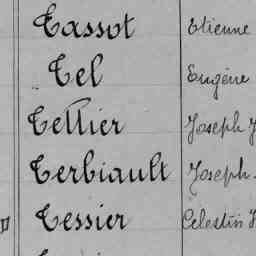 Tassot Etienne
Tel Eugène
Tellier Joseph J
Terbiault Joseph
Tessier Celestin